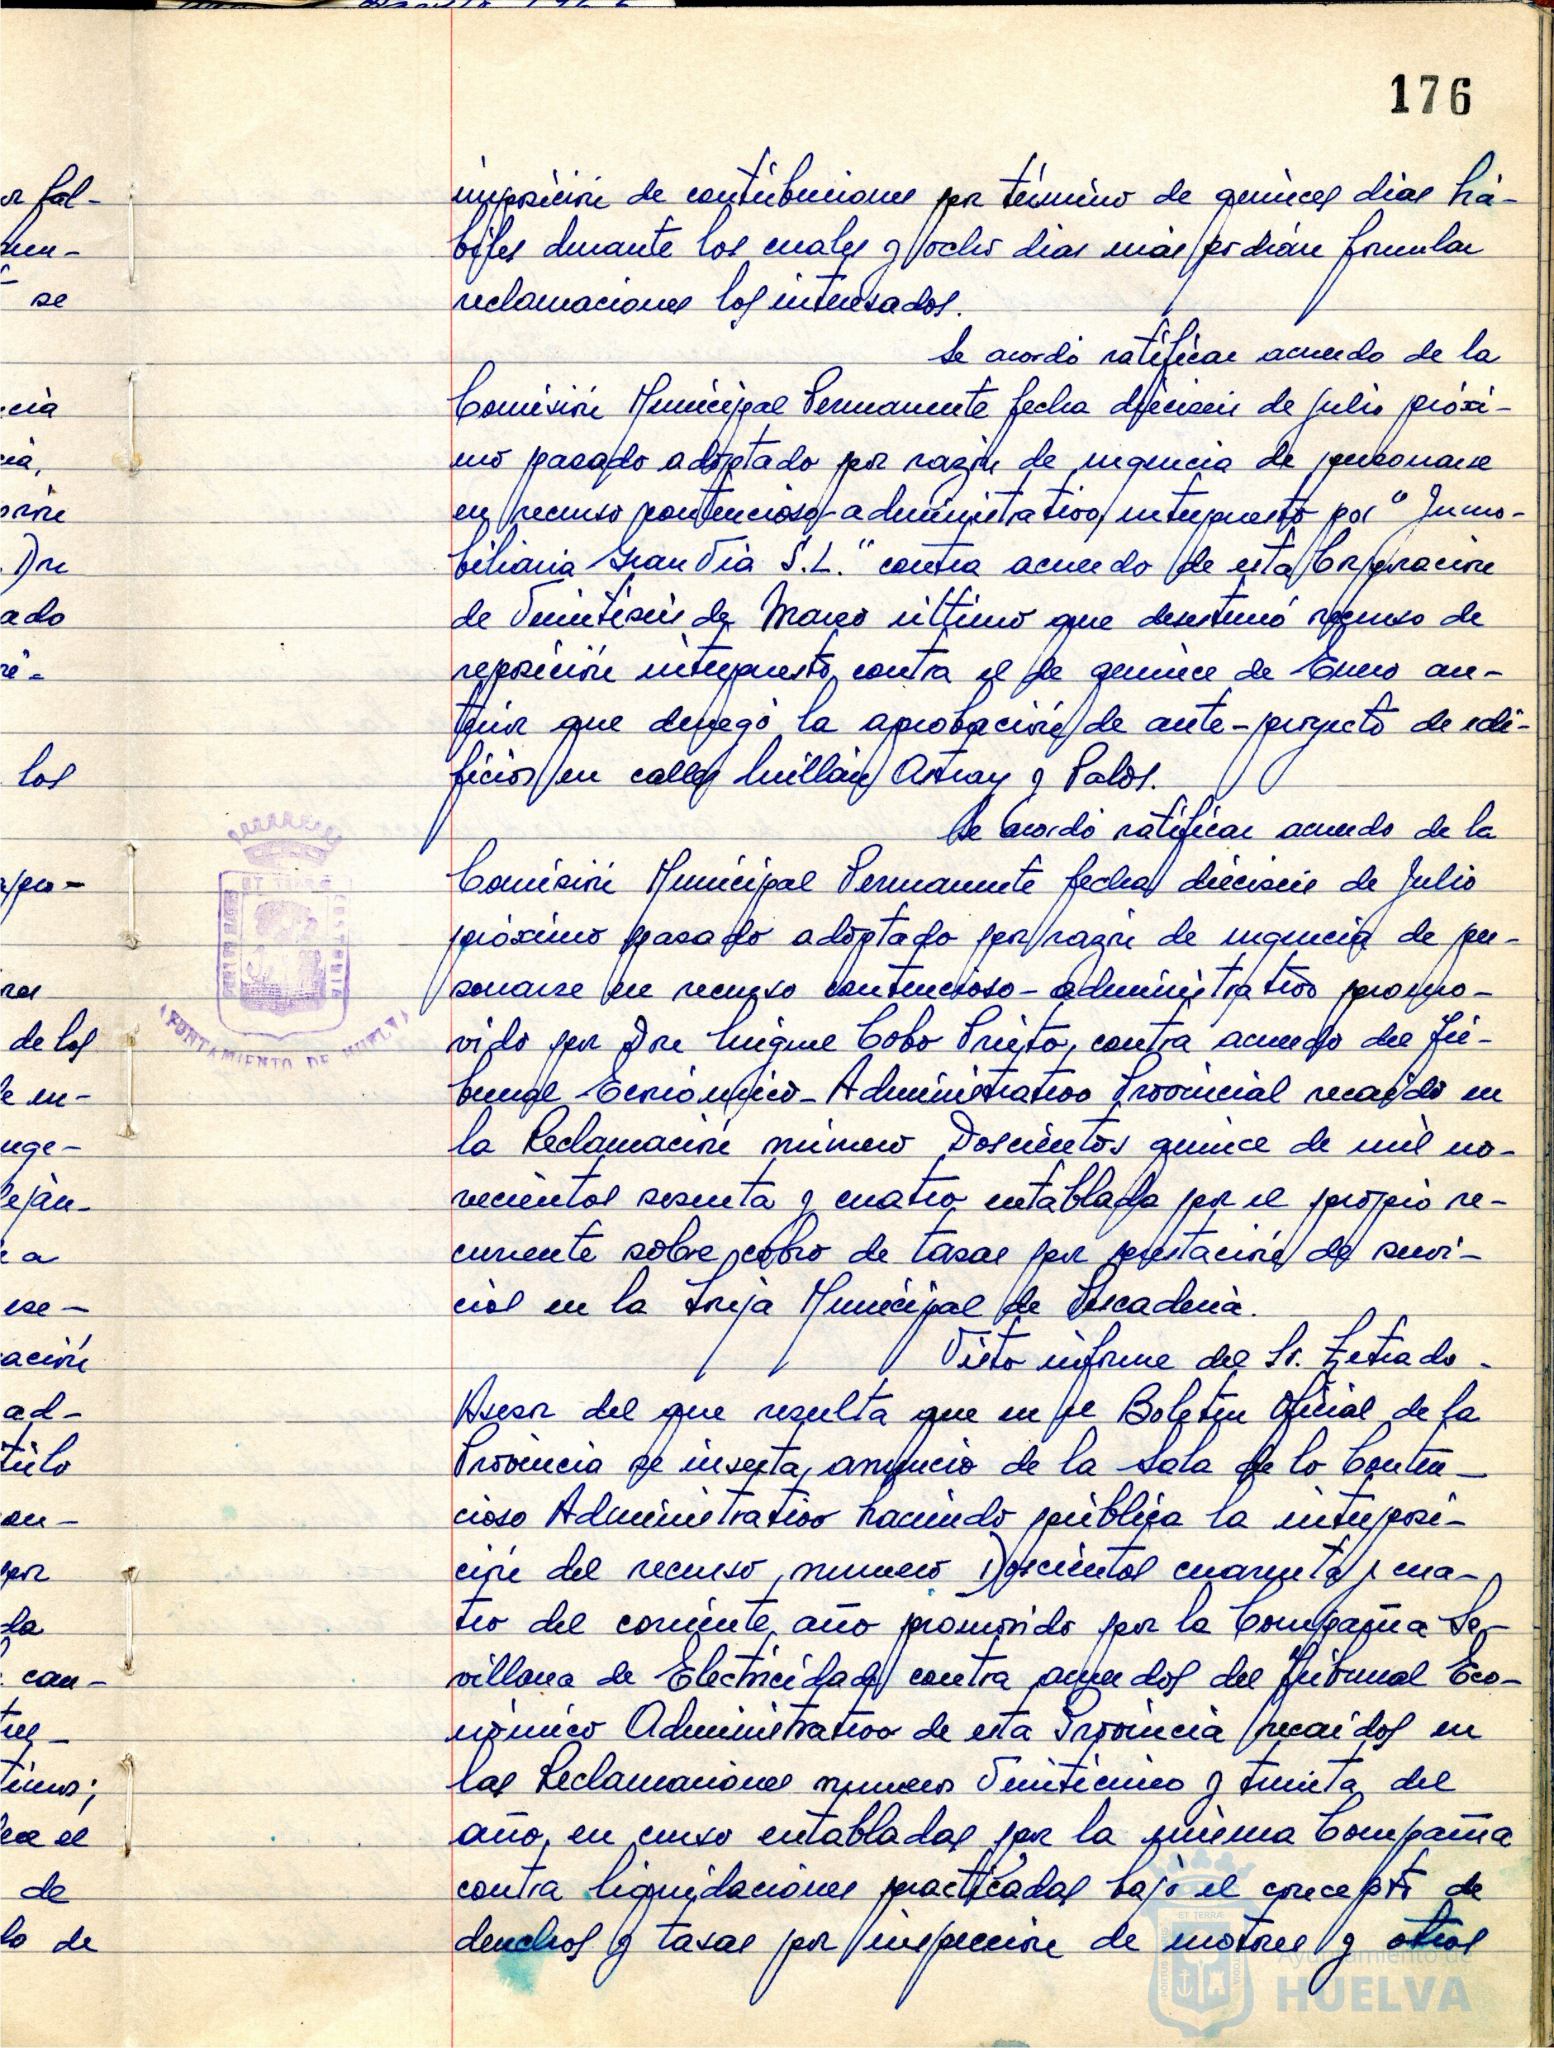 176
imposición de contribuciones por término de quinces dias há-
biles durante los cuales y ocho dias más podrán formular
reclamaciones los interesados.
Se acordó ratificar acuerdo de la
Comisión Municipal Permanente fecha dieciseis de Julio próxi-
mo pasado adoptado por razón de urgencia de personarse
en recurso contencioso-administrativo, interpuesto por "Inmo-
biliaria Gran Via S.L." contra acuerdo de esta Corporación
de Veintiseis de Marzo último que desestimó recurso de
reposición interpuesto contra el de quince de Enero an-
terior que denegó la aprobación de ante-proyecto de edi-
ficios en calles Millán Astray y Palos.
Se acordó ratificar acuerdo de la
Comisión Municipal Permanente fecha dieciseis de Julio
próximo pasado adoptado por razón de urgencia de per-
sonarse en recurso contencioso-administrativo promo-
vido por Don Miguel Cobo Prieto, contra acuerdo del Tri-
bunal Económico-Administrativo Provincial recaído en
la Reclamación número Doscientos quince de mil no-
vecientos sesenta y cuatro entablada por el propio re-
currente sobre cobro de tasas por prestación de servi-
cios en la Lonja Municipal de Pescadería.
Visto informe del Sr. Letrado-
Asesor del que resulta que en el Boletín Oficial de la
Provincia se inserta anuncio de la Sala de lo Conten-
cioso Administrativo haciendo pública la interposi-
ción del recurso número Doscientos cuarenta y cua-
tro del corriente año promovido por la Compañia Se-
villana de Electricidad contra acuerdos del Tribunal Eco-
nómico Administrativo de esta Provincia recaídos en
las Reclamaciones números Veinticinco y treinta del
año en curso entabladas por la misma Compañia
contra liquidaciones practicadas bajo el concepto de
derechos y tasas por inspección de motores y otros
ET TERRÆ
AYUNTAMIENTO DE HUELVA
Ayuntamiento de
HUELVA